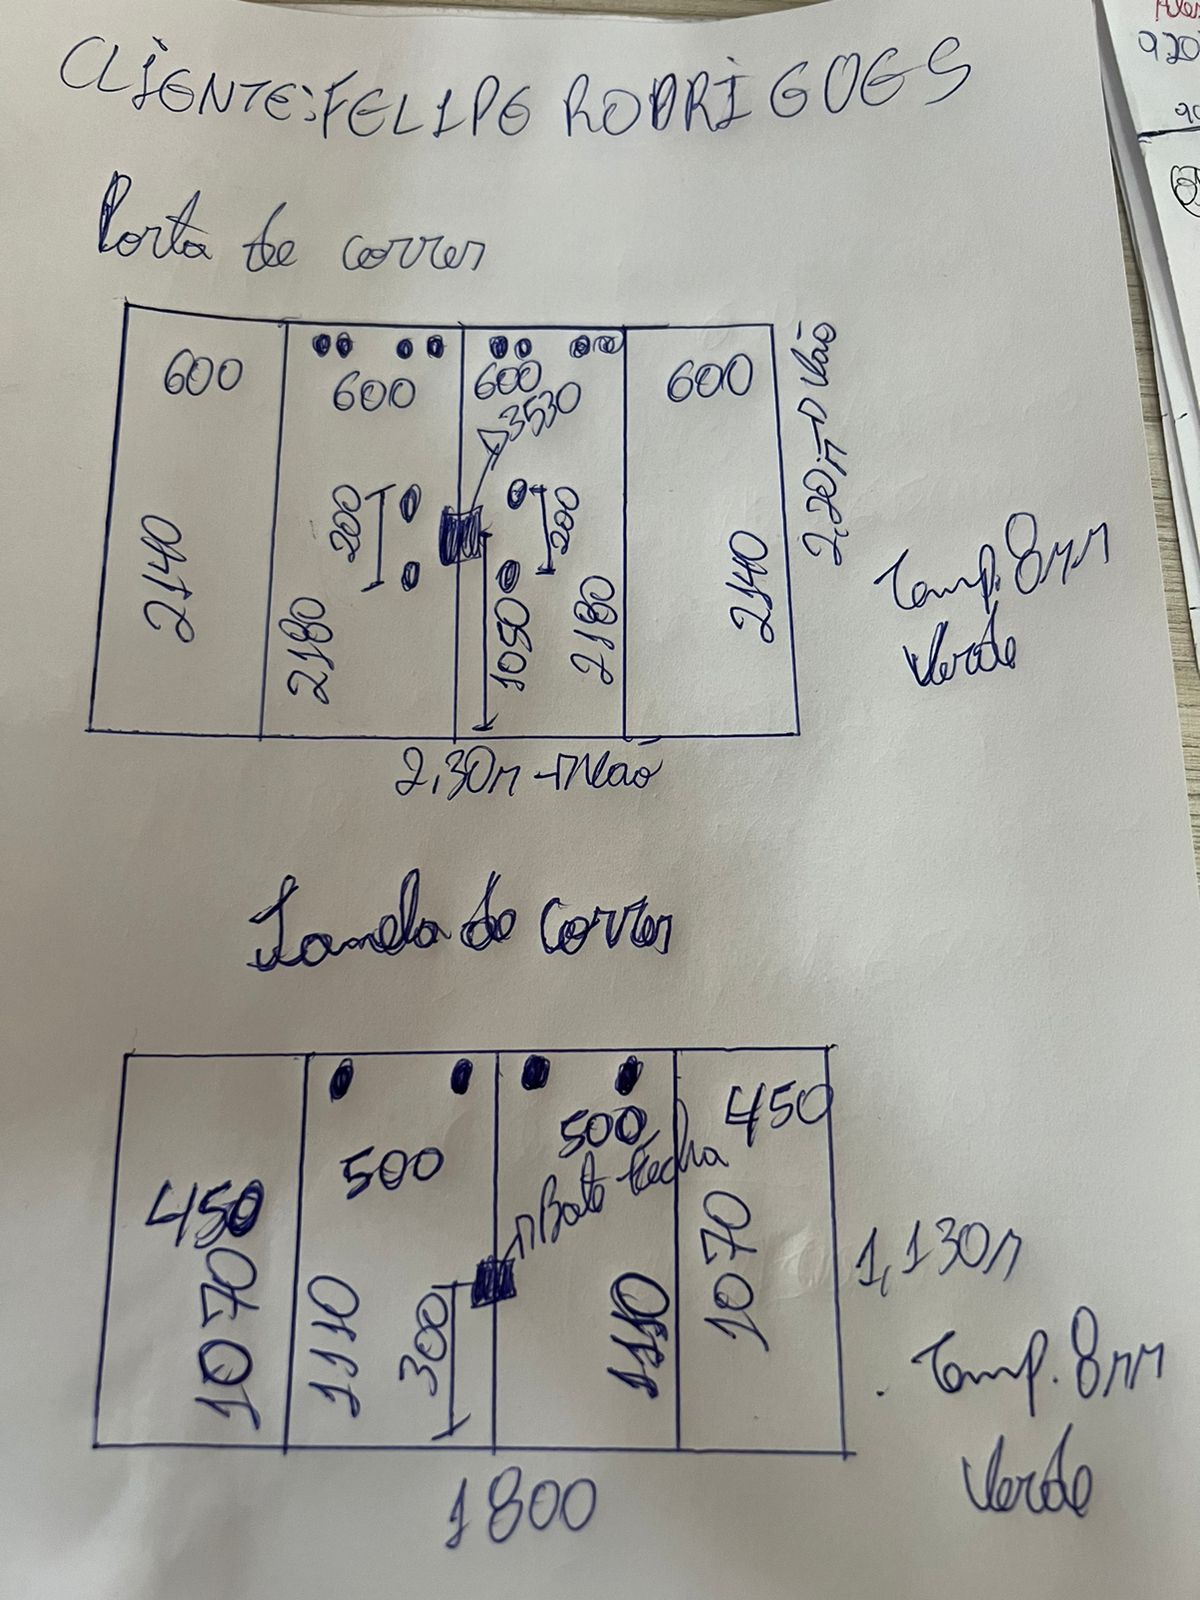 CLIENTE: FELIPE RODRIGUES
Porta de correr
600
600
600
600
3530
200
200
2140
2180
1050
2180
2140
2,20m → Vão
Temp. 8mm
Verde
2,30m → Vão
Janela de correr
450
500
500
450
Bate fecha
1070
1110
300
1110
1070
1,130m
Temp. 8mm
Verde
1800
920